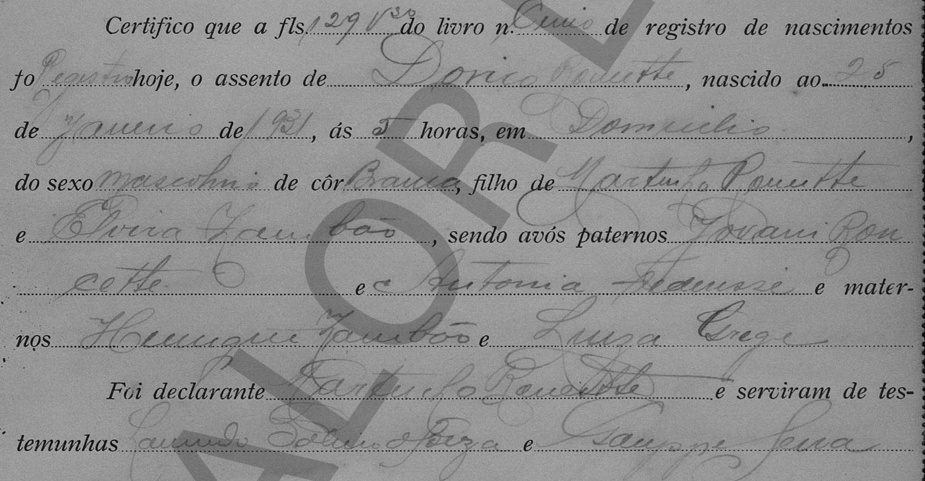 Certifico que a fls. 129 Vso do livro n. Cinco de registro de nascimentos
fo Registro hoje, o assento de Dorico Roncette, nascido ao 25
de Janeiro de 1931, ás 5 horas, em Domicilio,
do sexo masculino de côr Branca, filho de Roncette
e Elvira Zambão, sendo avós paternos Jovani Ron
cette e Antonia e mater-
nos Henrique Zambão e Luiza
Foi declarante Roncette e serviram de tes-
temunhas e
VALOR L